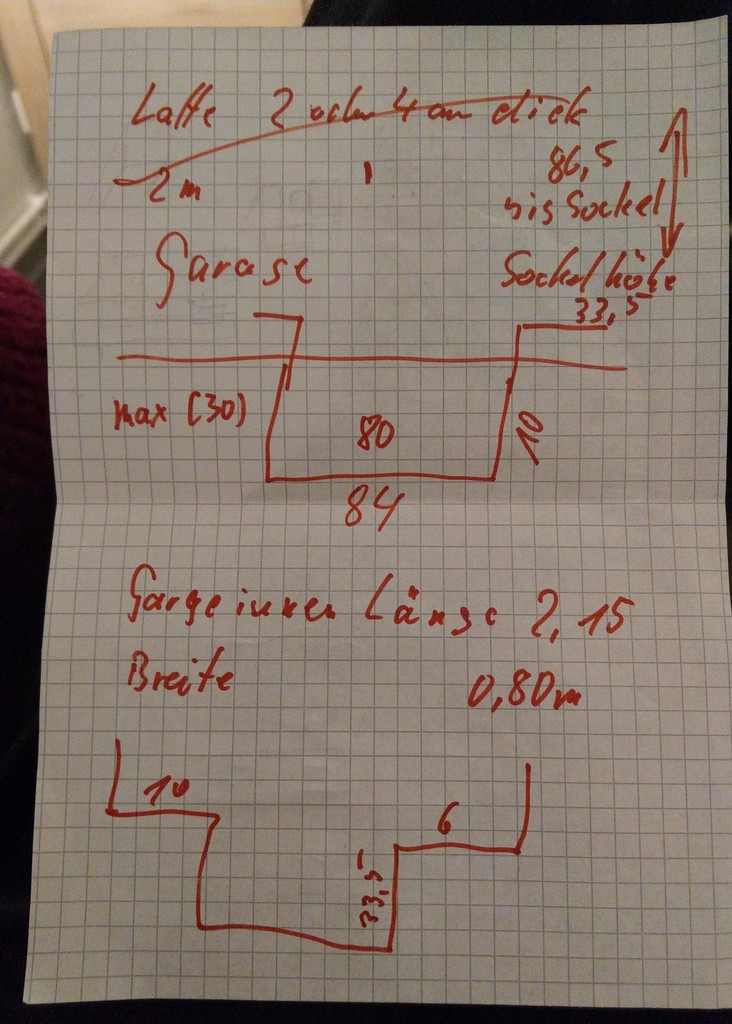 Latte 2 oder 4 cm dick
2 m
86,5
bis Sockel
Garage
Sockelhöhe
33,5
max (30)
80
10
84
Garge innen Länge 2,15
Breite 0,80m
10
6
33,5